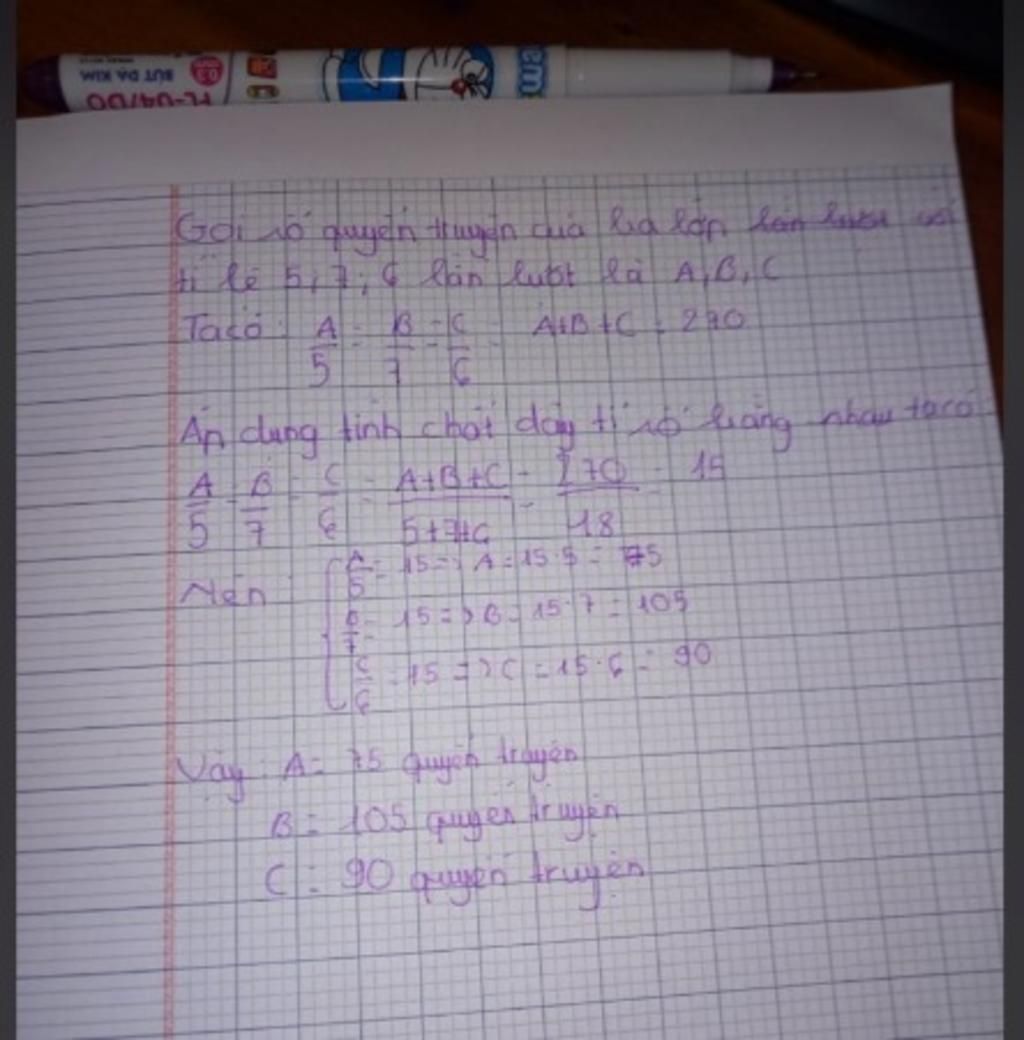 BÚT DẠ KIM
0.3
TL-04/DO
em
Gọi số quyển truyện của ba lớp lần lượt với
tỉ lệ 5, 7, 6 lần lượt là A, B, C
Ta có: A/5 = B/7 = C/6 = A+B+C = 270
Áp dụng tính chất dãy tỉ số bằng nhau ta có
A/5 = B/7 = C/6 = A+B+C/5+7+6 = 270/18 = 15
Nên
A/5 = 15 => A = 15.5 = 75
B/7 = 15 => B = 15.7 = 105
C/6 = 15 => C = 15.6 = 90
Vậy: A = 75 quyển truyện
B = 105 quyển truyện
C = 90 quyển truyện